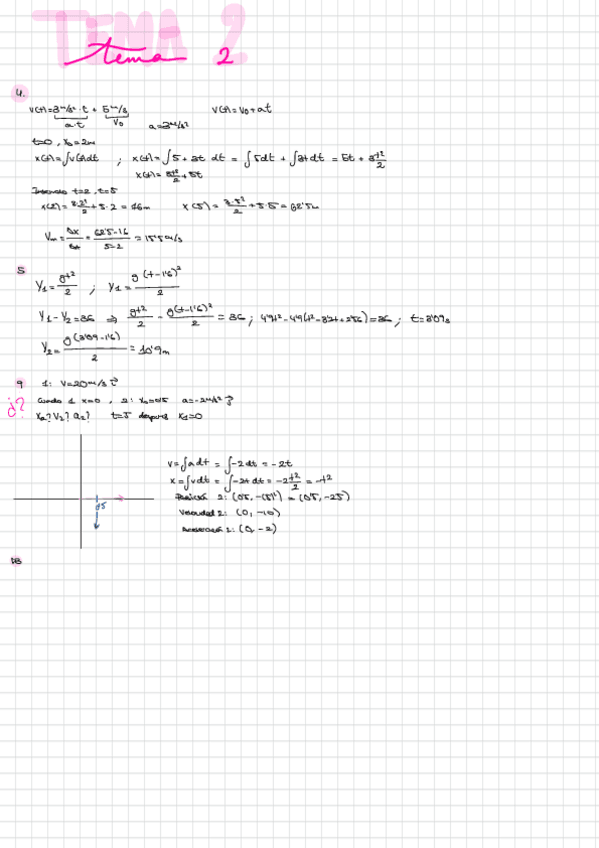 TEMA 2
tema 2
4.
v(t)=3m/s²·t + 5m/s v(t)=v₀+at
a·t v₀ a=3m/s²
t=0, x₀=2m
x(t)=∫v(t)dt ; x(t)=∫5+3t dt = ∫5dt + ∫3t dt = 5t + 3t²/2
x(t)=3t²/2+5t
Intervalo t=2, t=5
x(2)=3·2²/2+5·2=16m x(5)=3·5²/2+5·5=62'5m
Vm=Δx/Δt=62'5-16/5-2=15'5m/s
5
Y₁=gt²/2 ; Y₁=g(t-1'6)²/2
Y₁-Y₂=36 ⇒ gt²/2 - g(t-1'6)²/2 = 36 ; 4'9t²-4'9(t²-3'2t+2'56)=36 ; t=3'09s
Y₂=g(3'09-1'6)/2=10'9m
9 1: v=20m/s i→
¿? Cuando 1 x=0, 2: x₀=0'5 a=-2m/s² j→
x₂? v₂? a₂? t=5 después x₁=0
v=∫a dt=∫-2dt=-2t
x=∫vdt=∫-2t dt=-2t²/2=-t²
Posición 2: (0'5, -(5)²) = (0'5, -25)
0'5
Velocidad 2: (0, -10)
Aceleración 2: (0, -2)